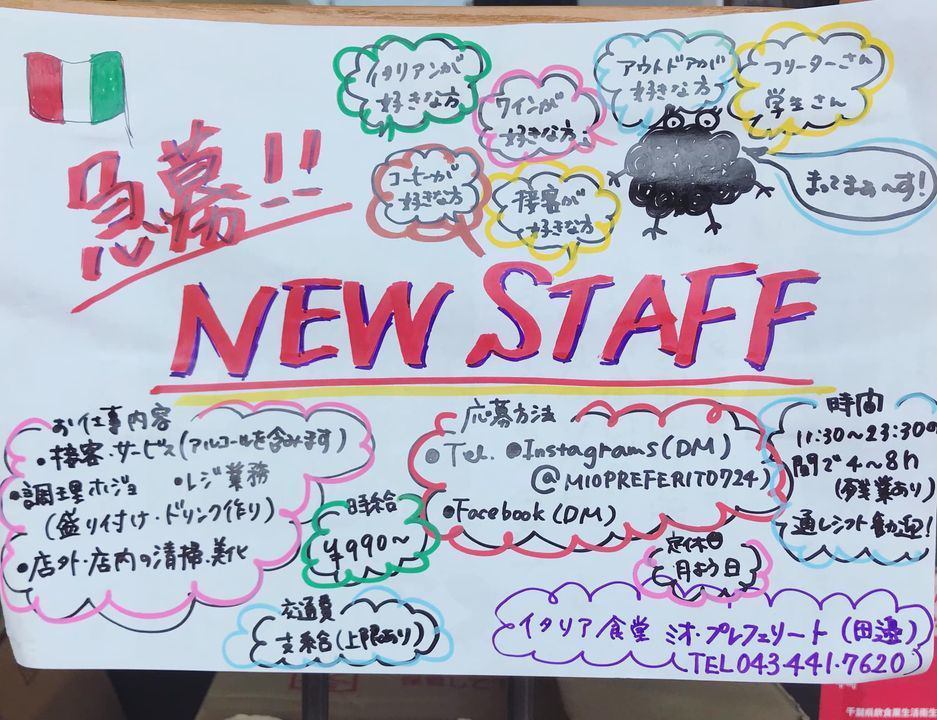 急募!!
イタリアンが
好きな方
ワインが
好きな方
アウトドアが
好きな方
フリーターさん
学生さん
コーヒーが
好きな方
接客が
好きな方
まってまぁ〜す!
NEW STAFF
お仕事内容
・接客・サービス(アルコールを含みます)
・調理ホジョ ・レジ業務
(盛り付け・ドリンク作り)
・店外・店内の清掃・美化
時給
¥990〜
交通費
支給(上限あり)
応募方法
●Tel. ●Instagrams(DM)
@MIOPREFERITO724)
●Facebook(DM)
時間
11:30〜23:30の
間で4〜8h
(残業あり)
通しシフト歓迎!
定休日
月よう日
イタリア食堂 ミオ・プレフェリート(田邉)
TEL 043・441・7620
千葉県飲食業生活衛生